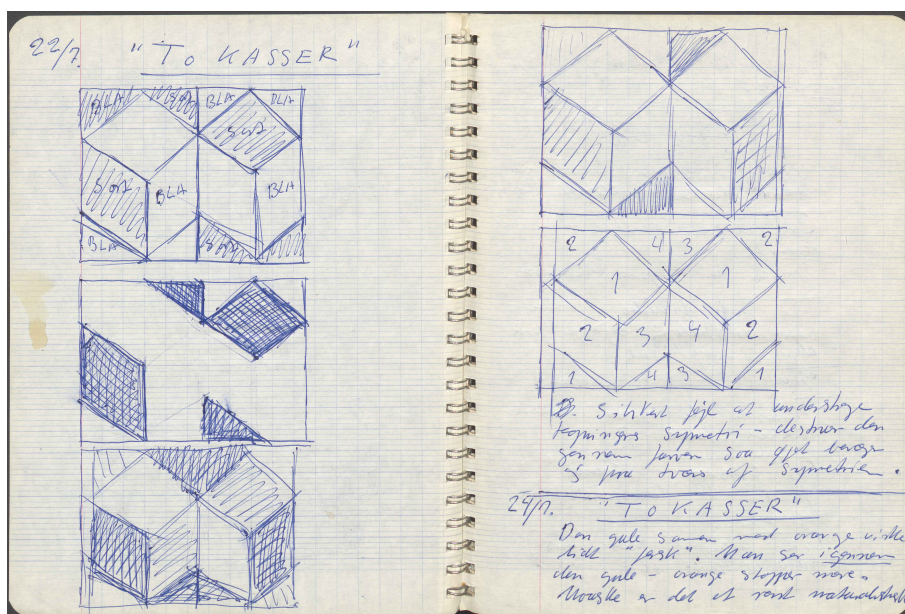 22/7. "TO KASSER"
BLÅ BLÅ BLÅ
Sort
Sort BLÅ BLÅ
BLÅ Sort
2 4 3 2
1 1
2 3 4 2
1 4 3 1
B. Sikkert fejl at understrege
tegningens symetri – destruer den
gennem farven saa øjet bevæger
sig paa tværs af symetrien.
24/7. "TO KASSER"
Den gule sammen med orange virke
lidt "fersk". Man ser igennem
den gule – orange stopper mere.
Maaske er det et rent naturalistisk